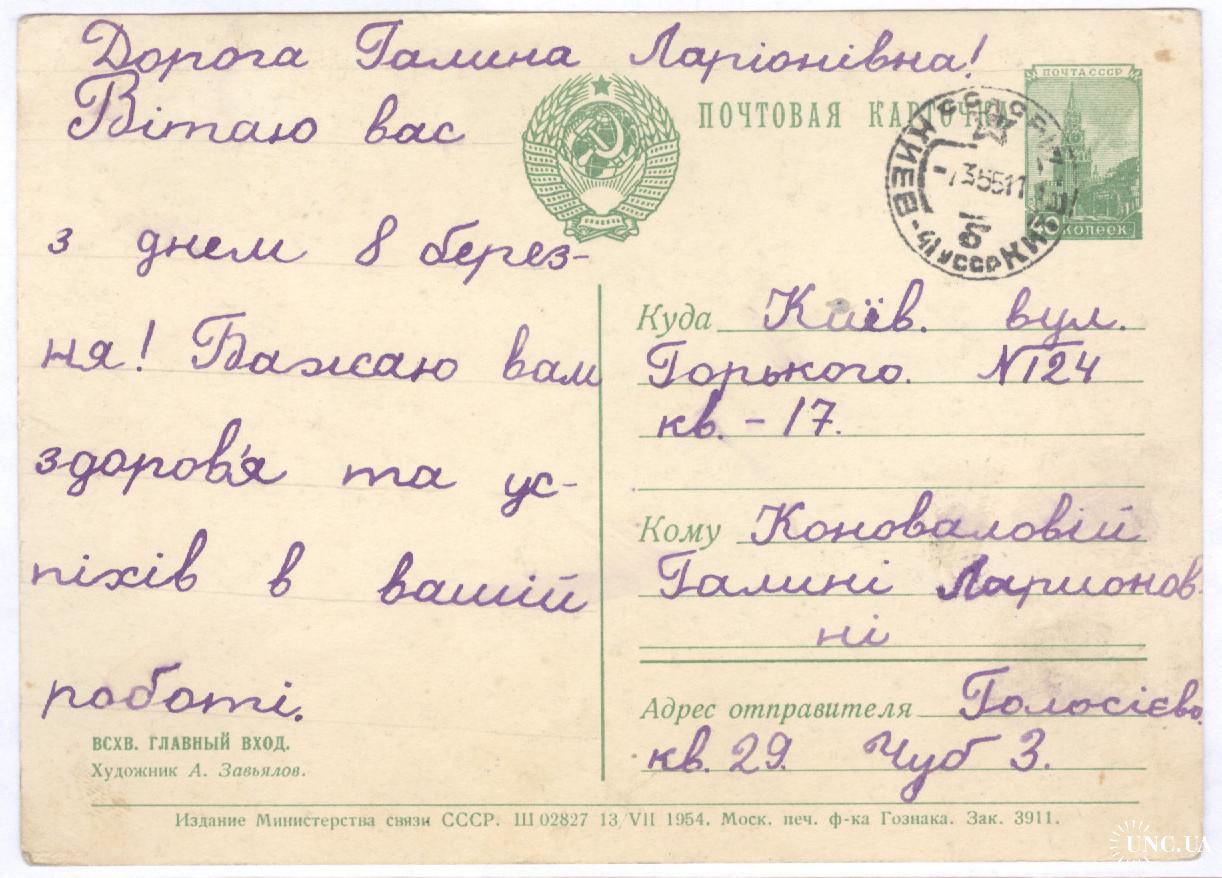 Дорога Галина Ларіонівна!
Вітаю вас
з днем 8 берез-
ня! Бажаю вам
здоров'я та ус-
піхів в вашій
роботі.
ВСХВ. ГЛАВНЫЙ ВХОД.
Художник А. Завьялов.
ПОЧТОВАЯ КАРТОЧКА
ПОЧТА СССР
копеек
КИЕВ
УССР
Куда Київ. вул.
Горького. №124
кв. - 17.
Кому Коноваловій
Галині Ларионов-
ні
Адрес отправителя Голосієво,
кв. 29. Чуб З.
Издание Министерства связи СССР. Ш 02827 13/VII 1954. Моск. печ. ф-ка Гознака. Зак. 3911.
UNC.UA